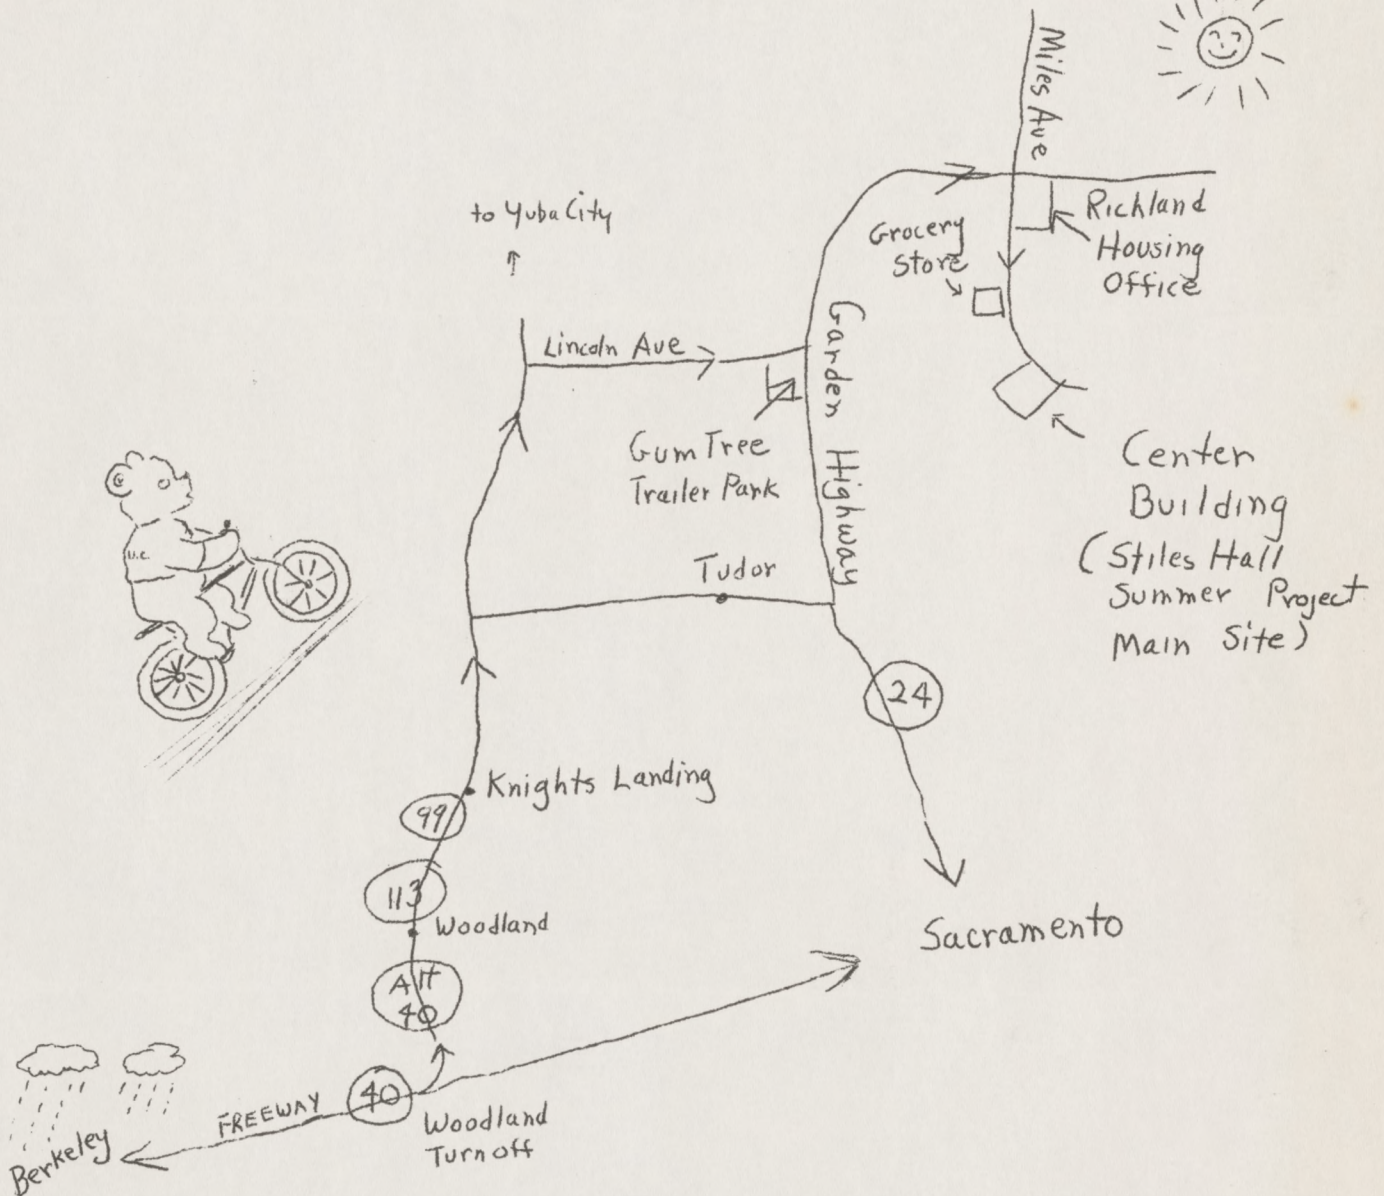 Miles Ave
to Yuba City
Grocery
Store
Richland
Housing
Office
Lincoln Ave
Garden Highway
Gum Tree
Trailer Park
Center
Building
(Stiles Hall
Summer Project
Main Site)
U.C.
Tudor
24
Knights Landing
99
113
Woodland
Sacramento
Alt
40
40
FREEWAY
Woodland
Turnoff
Berkeley